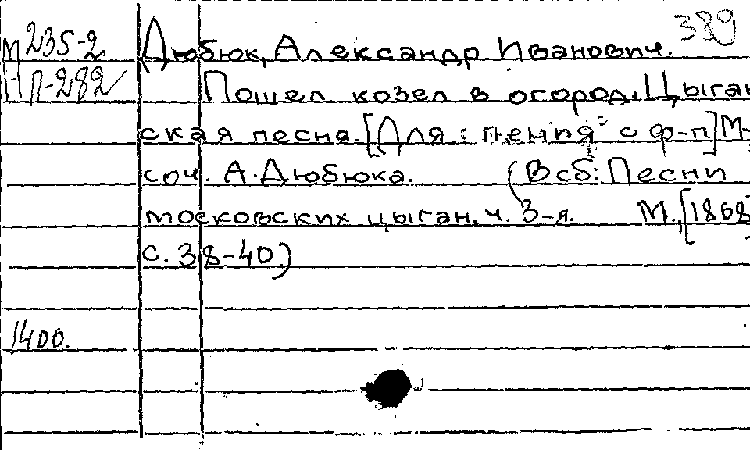 389
М 235-2 Дюбюк, Александр Иванович.
НП-282 Пошел козел в огород. Цыган
ская песня. [Для пения с ф-п] М.
соч. А. Дюбюка. (В сб: Песни
московских цыган. ч. 3-я. М., [1868]
с. 38-40.)
1400.